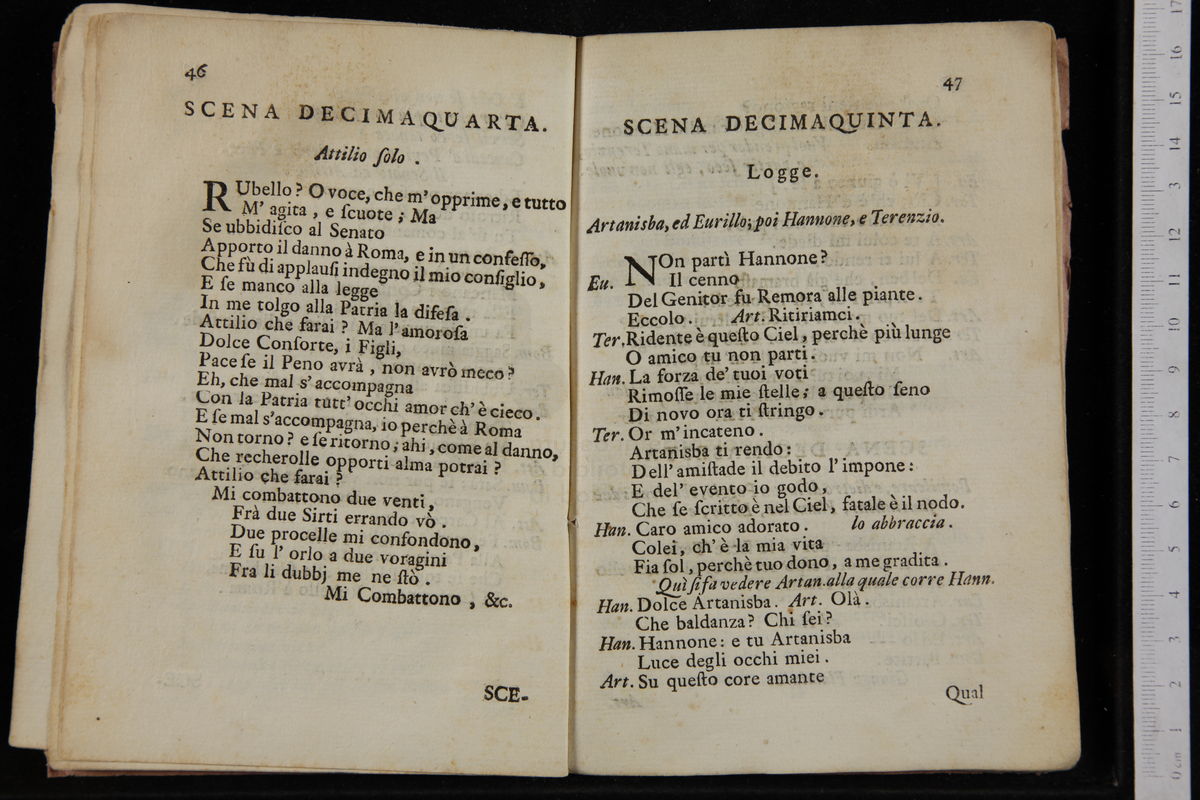 46
SCENA DECIMAQUARTA.
Attilio ſolo .
RUbello? O voce, che m' opprime, e tutto
M' agita , e ſcuote ; Ma
Se ubbidiſco al Senato
Apporto il danno à Roma, e in un confeſſo,
Che fù di applauſi indegno il mio conſiglio,
E ſe manco alla legge
In me tolgo alla Patria la difeſa .
Attilio che farai ? Ma l' amoroſa
Dolce Conſorte, i Figli,
Pace ſe il Peno avrà , non avrò meco ?
Eh, che mal s' accompagna
Con la Patria tutt' occhi amor ch' è cieco .
E ſe mal s'accompagna, io perchè à Roma
Non torno ? e ſe ritorno ; ahi , come al danno,
Che recherolle opporti alma potrai ?
Attilio che farai ?
Mi combattono due venti,
Frà due Sirti errando vò .
Due procelle mi confondono,
E ſu l' orlo a due voragini
Fra li dubbj me ne ſtò .
Mi Combattono , &c.
SCE-
47
SCENA DECIMAQUINTA.
Logge.
Artanisba, ed Eurillo; poi Hannone, e Terenzio.
Eu. NOn partì Hannone?
Il cenno
Del Genitor fu Remora alle piante.
Eccolo. Art. Ritiriamci.
Ter. Ridente è queſto Ciel, perchè più lunge
O amico tu non parti.
Han. La forza de' tuoi voti
Rimoſſe le mie ſtelle; a queſto ſeno
Di novo ora ti ſtringo.
Ter. Or m' incateno.
Artanisba ti rendo:
Dell' amiſtade il debito l' impone:
E del' evento io godo,
Che ſe ſcritto è nel Ciel, fatale è il nodo.
Han. Caro amico adorato. lo abbraccia.
Colei, ch' è la mia vita
Fia ſol, perchè tuo dono, a me gradita.
Quì ſi fa vedere Artan. alla quale corre Hann.
Han. Dolce Artanisba. Art. Olà.
Che baldanza? Chi ſei?
Han. Hannone: e tu Artanisba
Luce degli occhi miei.
Art. Su queſto core amante
Qual
0 cm 1 2 3 4 5 6 7 8 9 10 11 12 13 14 15 16 17